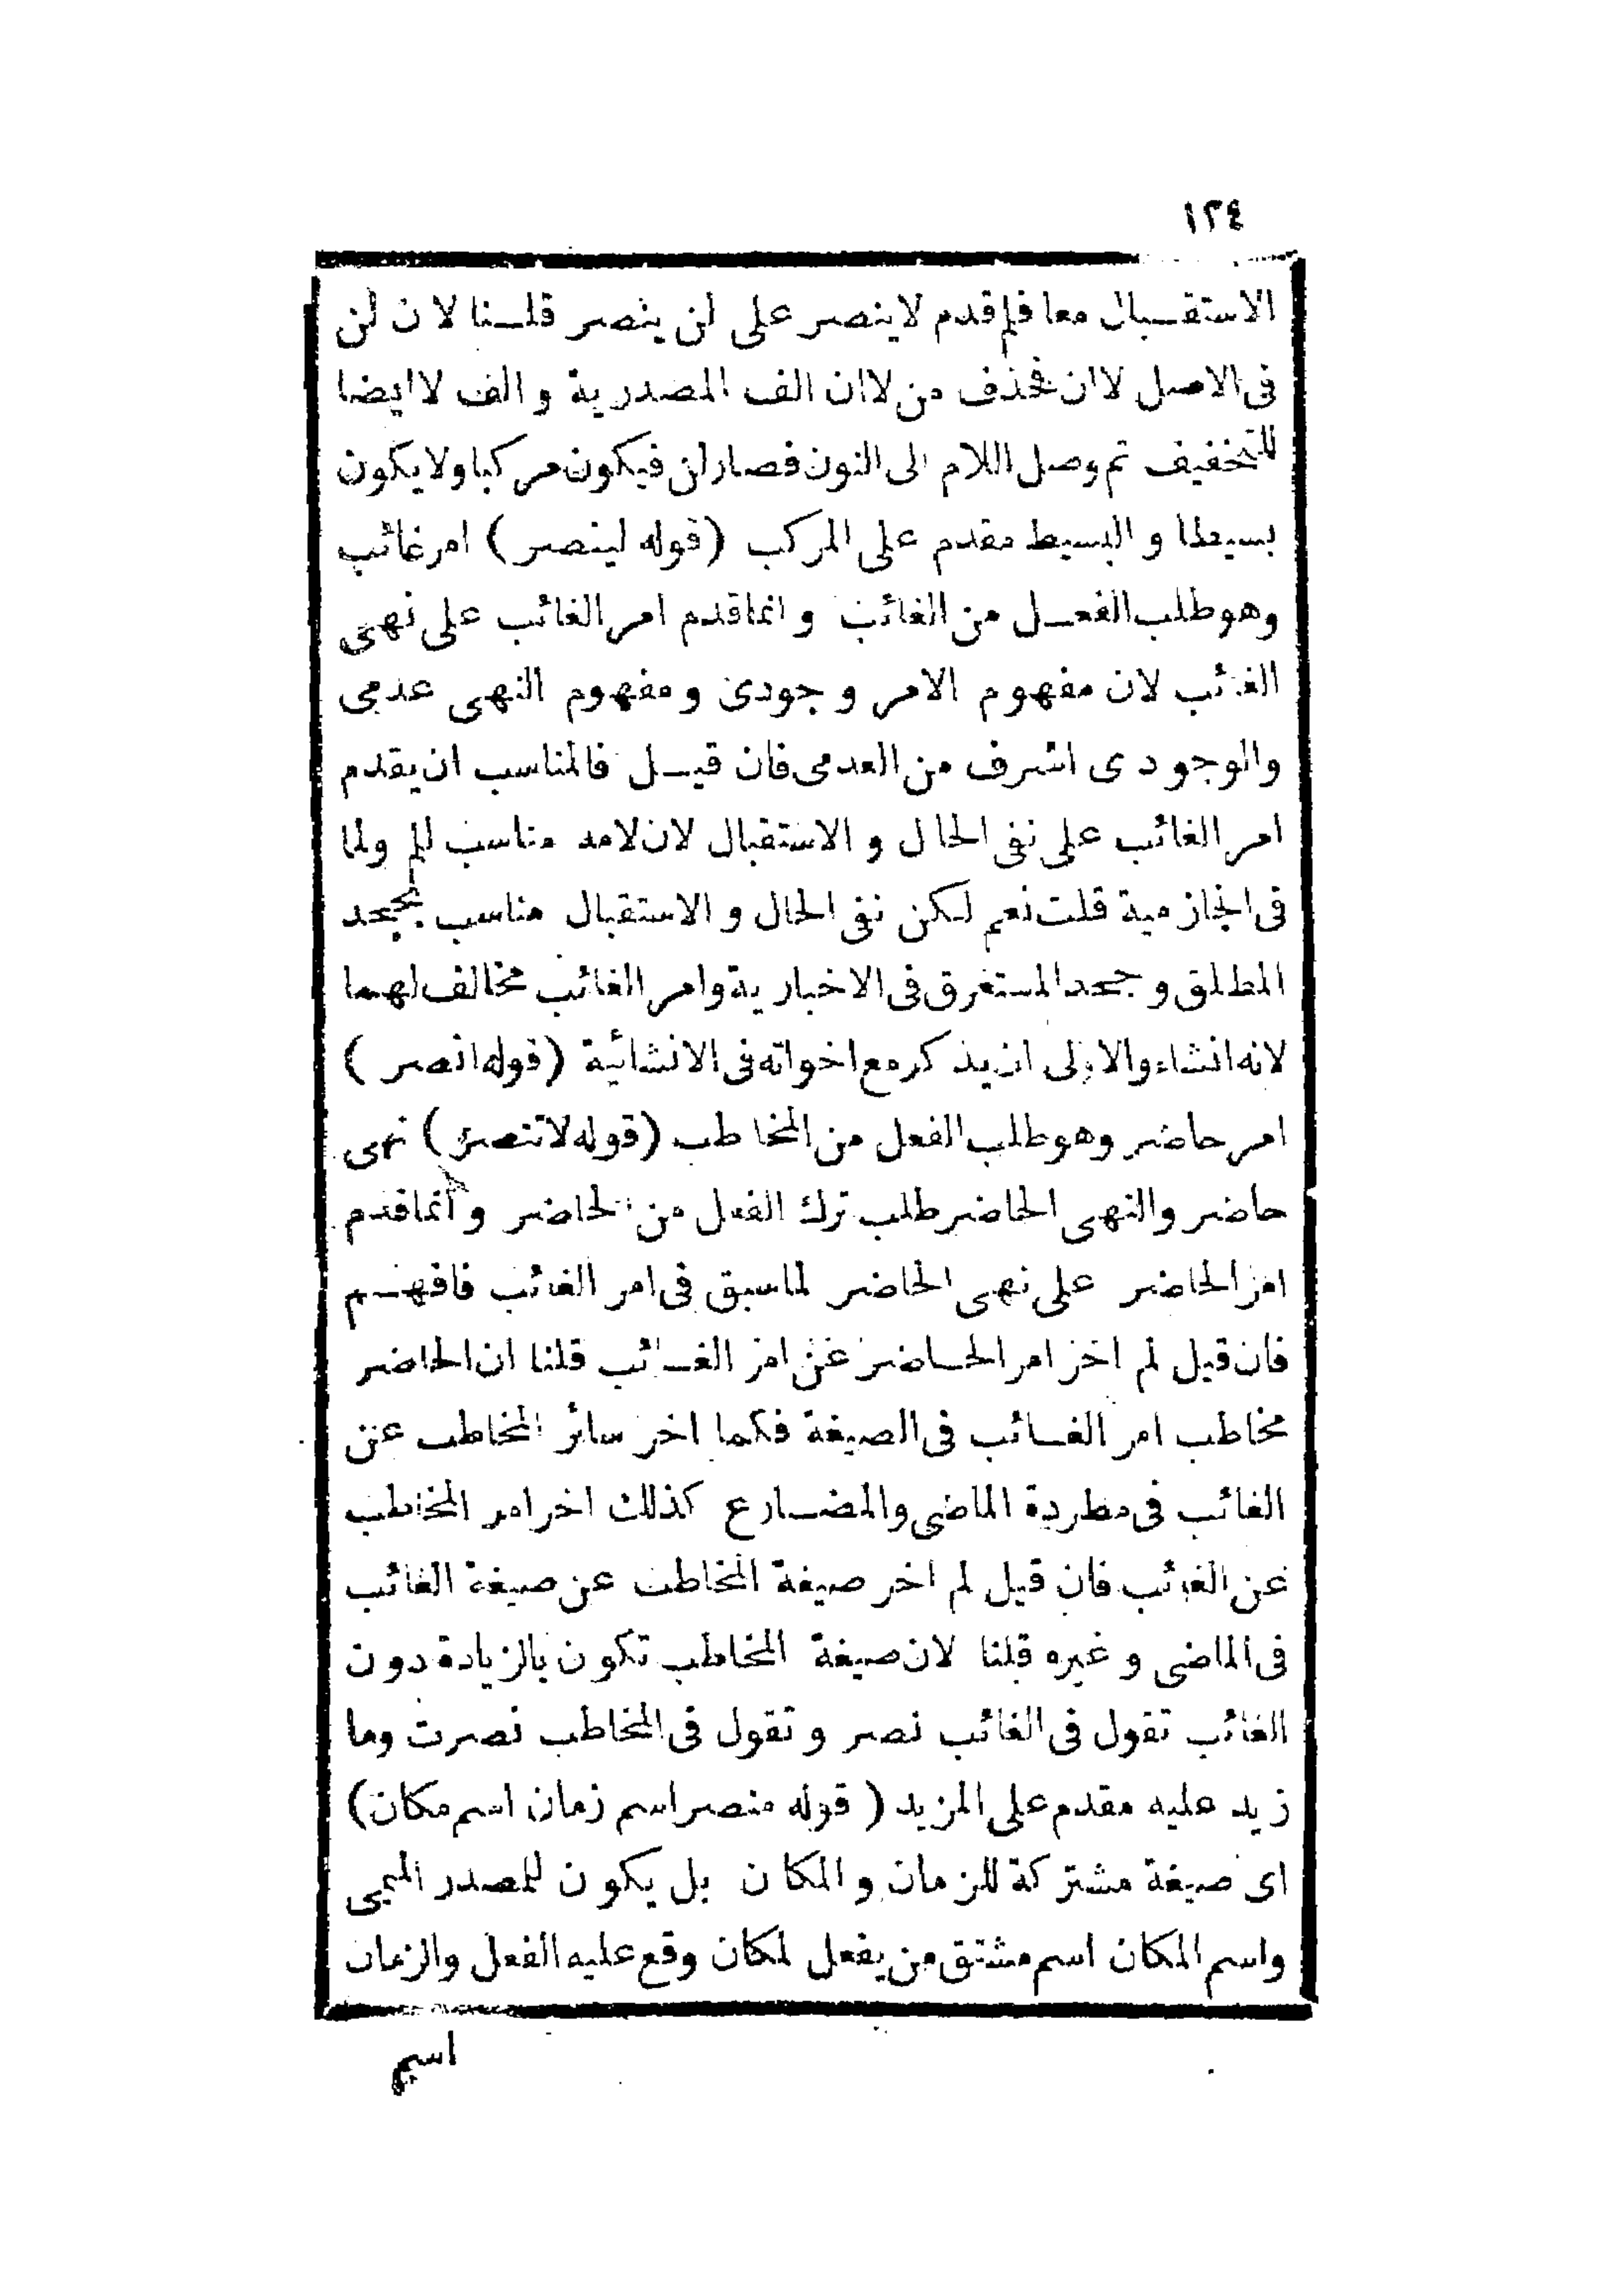 ١٢٤
الاستقبال معا فلم قدم لا ينصر على لن ينصر قلنا لان لن
فى الاصل لا ان فحذف من لا ان الف المصدرية و الف لا ايضا
للتخفيف ثم وصل اللام الى النون فصار لن فيكون مركبا ولا يكون
بسيطا و البسيط مقدم على المركب (قوله لينصر) امر غائب
وهو طلب الفعل من الغائب و انما قدم امر الغائب على نهى
الغائب لان مفهوم الامر وجودى و مفهوم النهى عدمى
والوجودى اشرف من العدمى فان قيل فالمناسب ان يقدم
امر الغائب على نفى الحال و الاستقبال لان لامه مناسب للم ولما
فى الجازمية قلت نعم لكن نفى الحال و الاستقبال مناسب بجحد
المطلق و جحد المستغرق فى الاخبارية وامر الغائب مخالف لهما
لانه انشاء والاولى ان يذكر مع اخواته فى الانشائية (قوله انصر)
امر حاضر وهو طلب الفعل من المخاطب (قوله لا تنصر) نهى
حاضر والنهى الحاضر طلب ترك الفعل من الحاضر و انما قدم
امر الحاضر على نهى الحاضر لما سبق فى امر الغائب فافهم
فان قيل لم اخر امر الحاضر عن امر الغائب قلنا ان الحاضر
مخاطب امر الغائب فى الصيغة فكما اخر سائر المخاطب عن
الغائب فى مطردة الماضى والمضارع كذلك اخر امر المخاطب
عن الغائب فان قيل لم اخر صيغة المخاطب عن صيغة الغائب
فى الماضى و غيره قلنا لان صيغة المخاطب تكون بالزيادة دون
الغائب تقول فى الغائب نصر و تقول فى المخاطب نصرت وما
زيد عليه مقدم على المزيد (قوله منصر اسم زمان اسم مكان)
اى صيغة مشتركة للزمان و المكان بل يكون للمصدر الميمى
واسم المكان اسم مشتق من يفعل لمكان وقع عليه الفعل والزمان
اسم